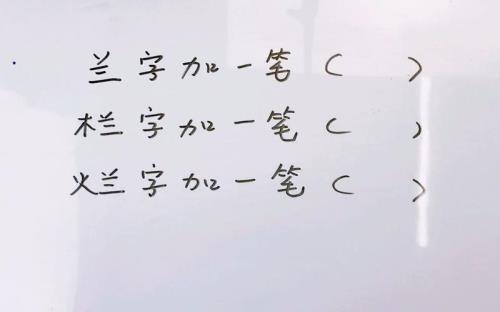 兰字加一笔( )
栏字加一笔( )
烂字加一笔( )